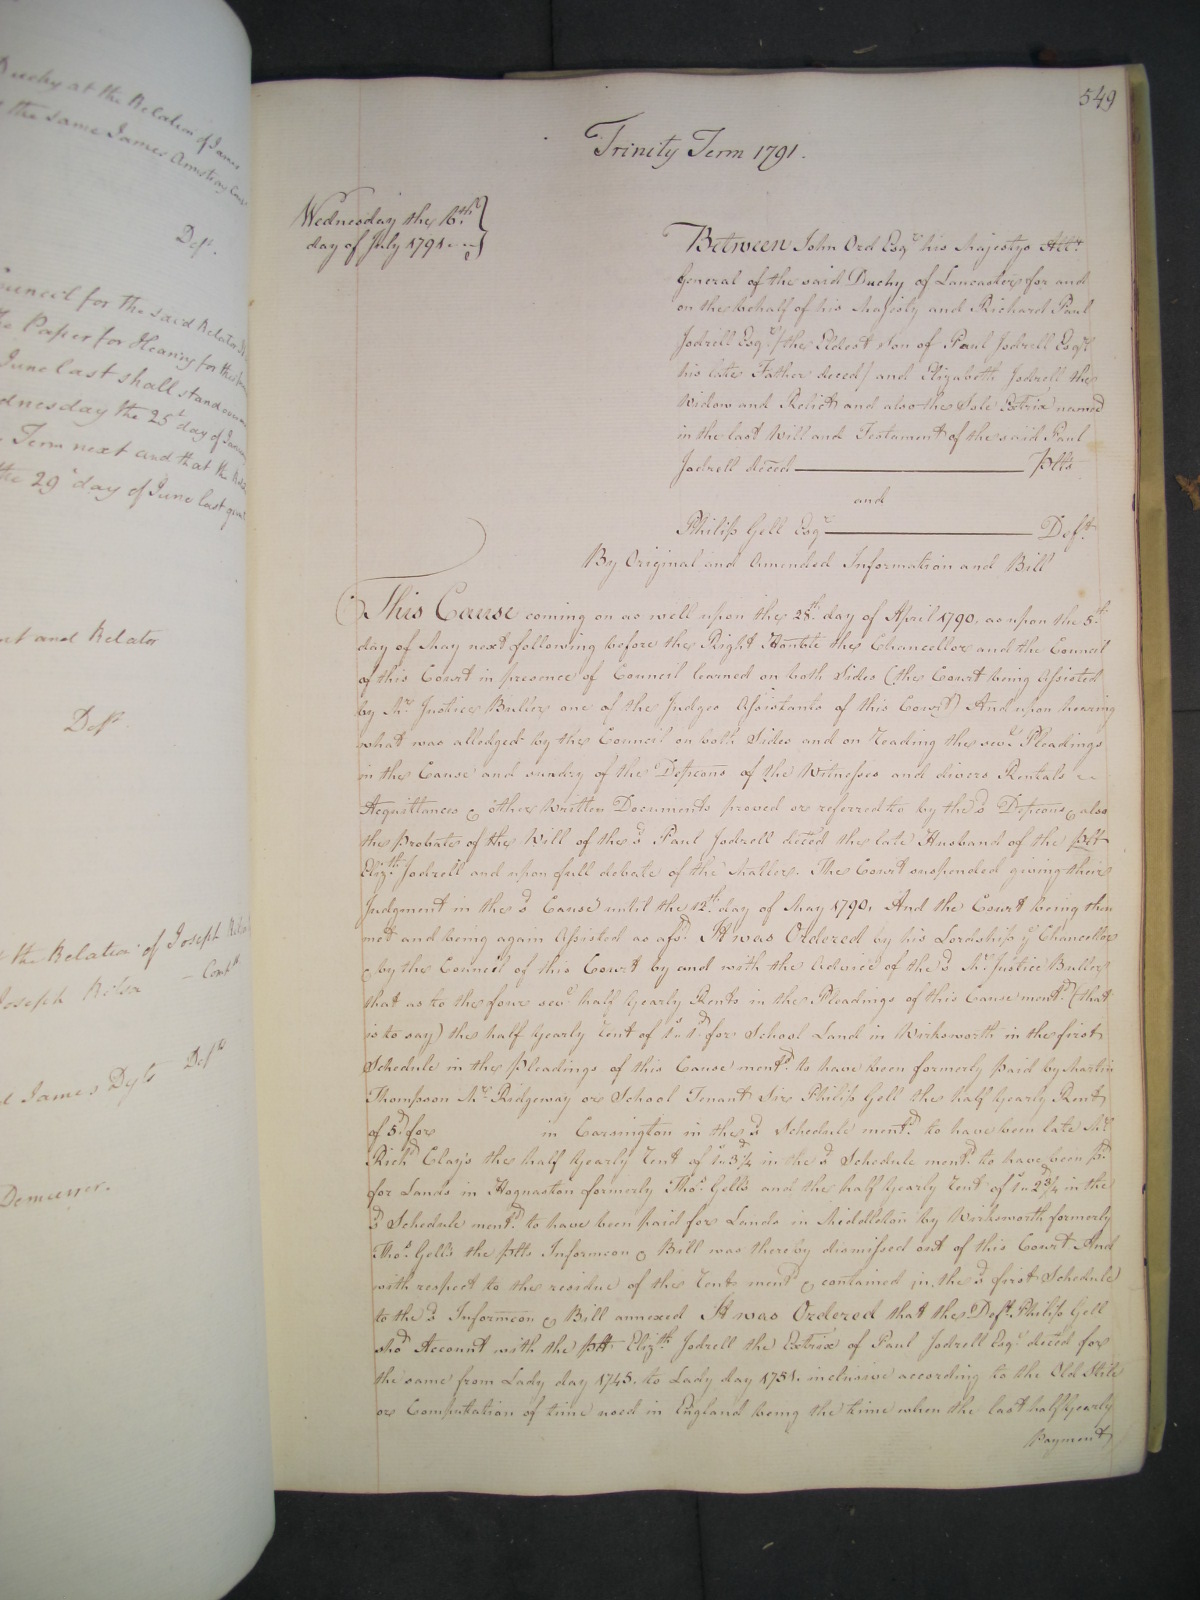 Duchy at the Relation of James
the same James Armstrong
Deft.
Council for the said Relator
Paper for Hearing for this
June last shall stand
Wednesday the 25th day of
Term next and that the
the 29th day of June last
and Relator
Deft.
the Relation of Joseph
Joseph
James Dyts Deft
Demurrer.
549
Trinity Term 1791.
Wednesday the 6th
day of July 1791
Between John Ord Esqr his Majestys Atty
General of the said Duchy of Lancaster for and
on the behalf of his Majesty and Richard Paul
Jodrell Esqr (the Eldest Son of Paul Jodrell Esqr
his late Father deced) and Elizabeth Jodrell the
Widow and Relict and also the Sole Extrix named
in the last Will and Testament of the said Paul
Jodrell deced Plts
and
Philip Gell Esqr Deft
By Original and Amended Information and Bill
This Cause coming on as well upon the 28th day of April 1790. as upon the 5th
day of May next following before the Right Honble the Chancellor and the Council
of this Court in presence of Council learned on both Sides (the Court being Assisted
by Mr Justice Buller one of the Judges Assistants of this Court) And upon hearing
what was alledged by the Council on both Sides and on reading the sevl Pleadings
in the Cause and sundry of the Depicons of the Witnesses and divers Rentals
Acquittances & other Written Documents proved or referred to by the sd Depicons & also
the Probate of the Will of the sd Paul Jodrell deced the late Husband of the plt
Elizth Jodrell and upon full debate of the Matter. The Court suspended giving their
Judgment in the sd Cause until the 12th day of May 1790. And the Court being then
met and being again Assisted as afsd It was Ordered by his Lordship ye Chancellor
& by the Council of this Court by and with the advice of the sd Mr Justice Buller
that as to the four sevl half Yearly Rents in the Pleadings of this Cause mentd (that
is to say) the half Yearly rent of 1s 1d for School Land in Wirksworth in the first
Schedule in the pleadings of this Cause mentd to have been formerly paid by Martin
Thompson Mr Ridgeway or School Tenant Sir Philip Gell the half Yearly Rent
of 5d for in Carsington in the sd Schedule mentd to have been late Mr
Richd Clays the half Yearly rent of 1s 3d 1/4 in the sd Schedule mentd to have been pd
for Lands in Hognaston formerly Thos Gells and the half Yearly rent of 1s 2d 3/4 in the
sd Schedule mentd to have been paid for Lands in Middleton by Wirksworth formerly
Thos Gells the plts Informcon & Bill was thereby dismissed out of this Court And
with respect to the residue of the rents mentd & contained in the sd first Schedule
to the sd Informcon & Bill annexed It was Ordered that the Deft Philip Gell
shod Account with the plt Elizth Jodrell the Extrix of Paul Jodrell Esqr deced for
the same from Lady day 1745. to Lady day 1751. inclusive according to the Old Stile
or Computation of time used in England being the time when the last half Yearly
Payment